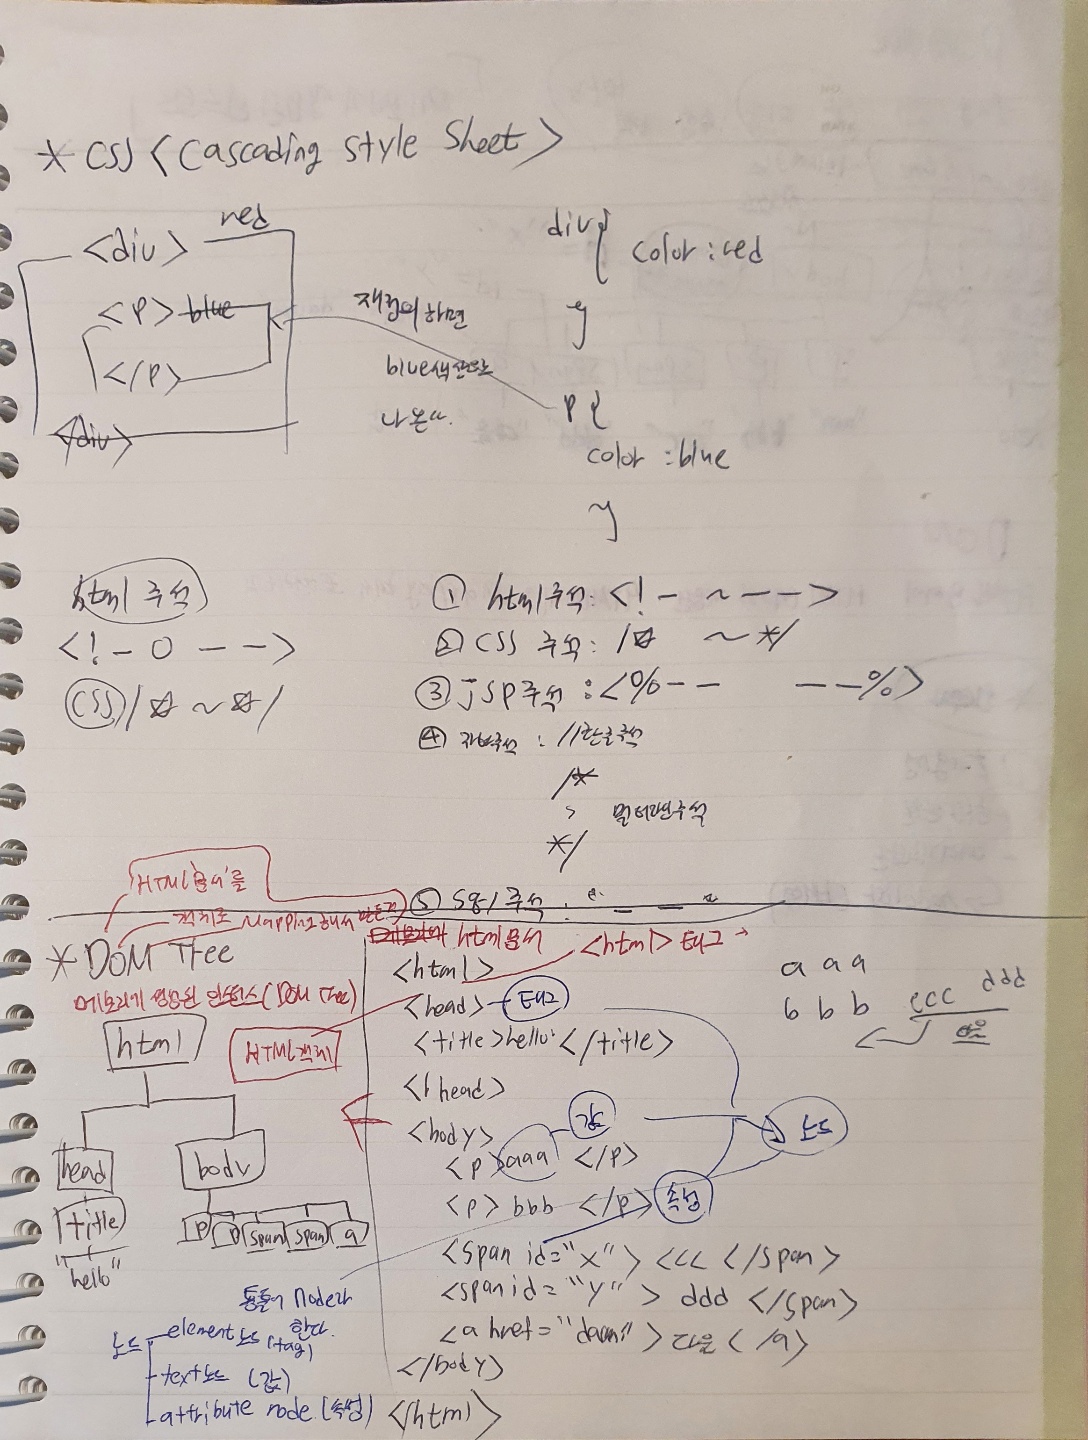 * CSS < Cascading Style Sheet >
<div> red
<p> blue
</p>
</div>
재정의하면
blue색상으로
나온다.
div{
color : red
}
p {
color : blue
}
html 주석
<! - 0 - - >
CSS /* ~ */
① html주석 : <! - ~ - - >
② CSS 주석 : /* ~ */
③ jsp주석 : <%-- --%>
④ 자바주석 : //한줄주석
/*
> 멀티라인주석
*/
⑤ sql 주석 : - - -
HTML문서를
객체로 Mapping해서 만든것
* DOM Tree
메모리에 생성된 인스턴스 (DOM Tree)
html
HTML객체
head
body
title
"hello"
p p span span a
통틀어 Node라
한다.
노드 element 노드 (tag)
text노드 (값)
attribute node (속성)
html문서
<html> 태그
<html>
<head> 태그
<title>hello</title>
</head>
<body>
<p>aaa </p>
값
노드
<p> bbb </p> 속성
<span id="x"> ccc </span>
<span id="y"> ddd </span>
<a href="daum"> 다음 </a>
</body>
</html>
a a a
b b b ccc ddd
다음